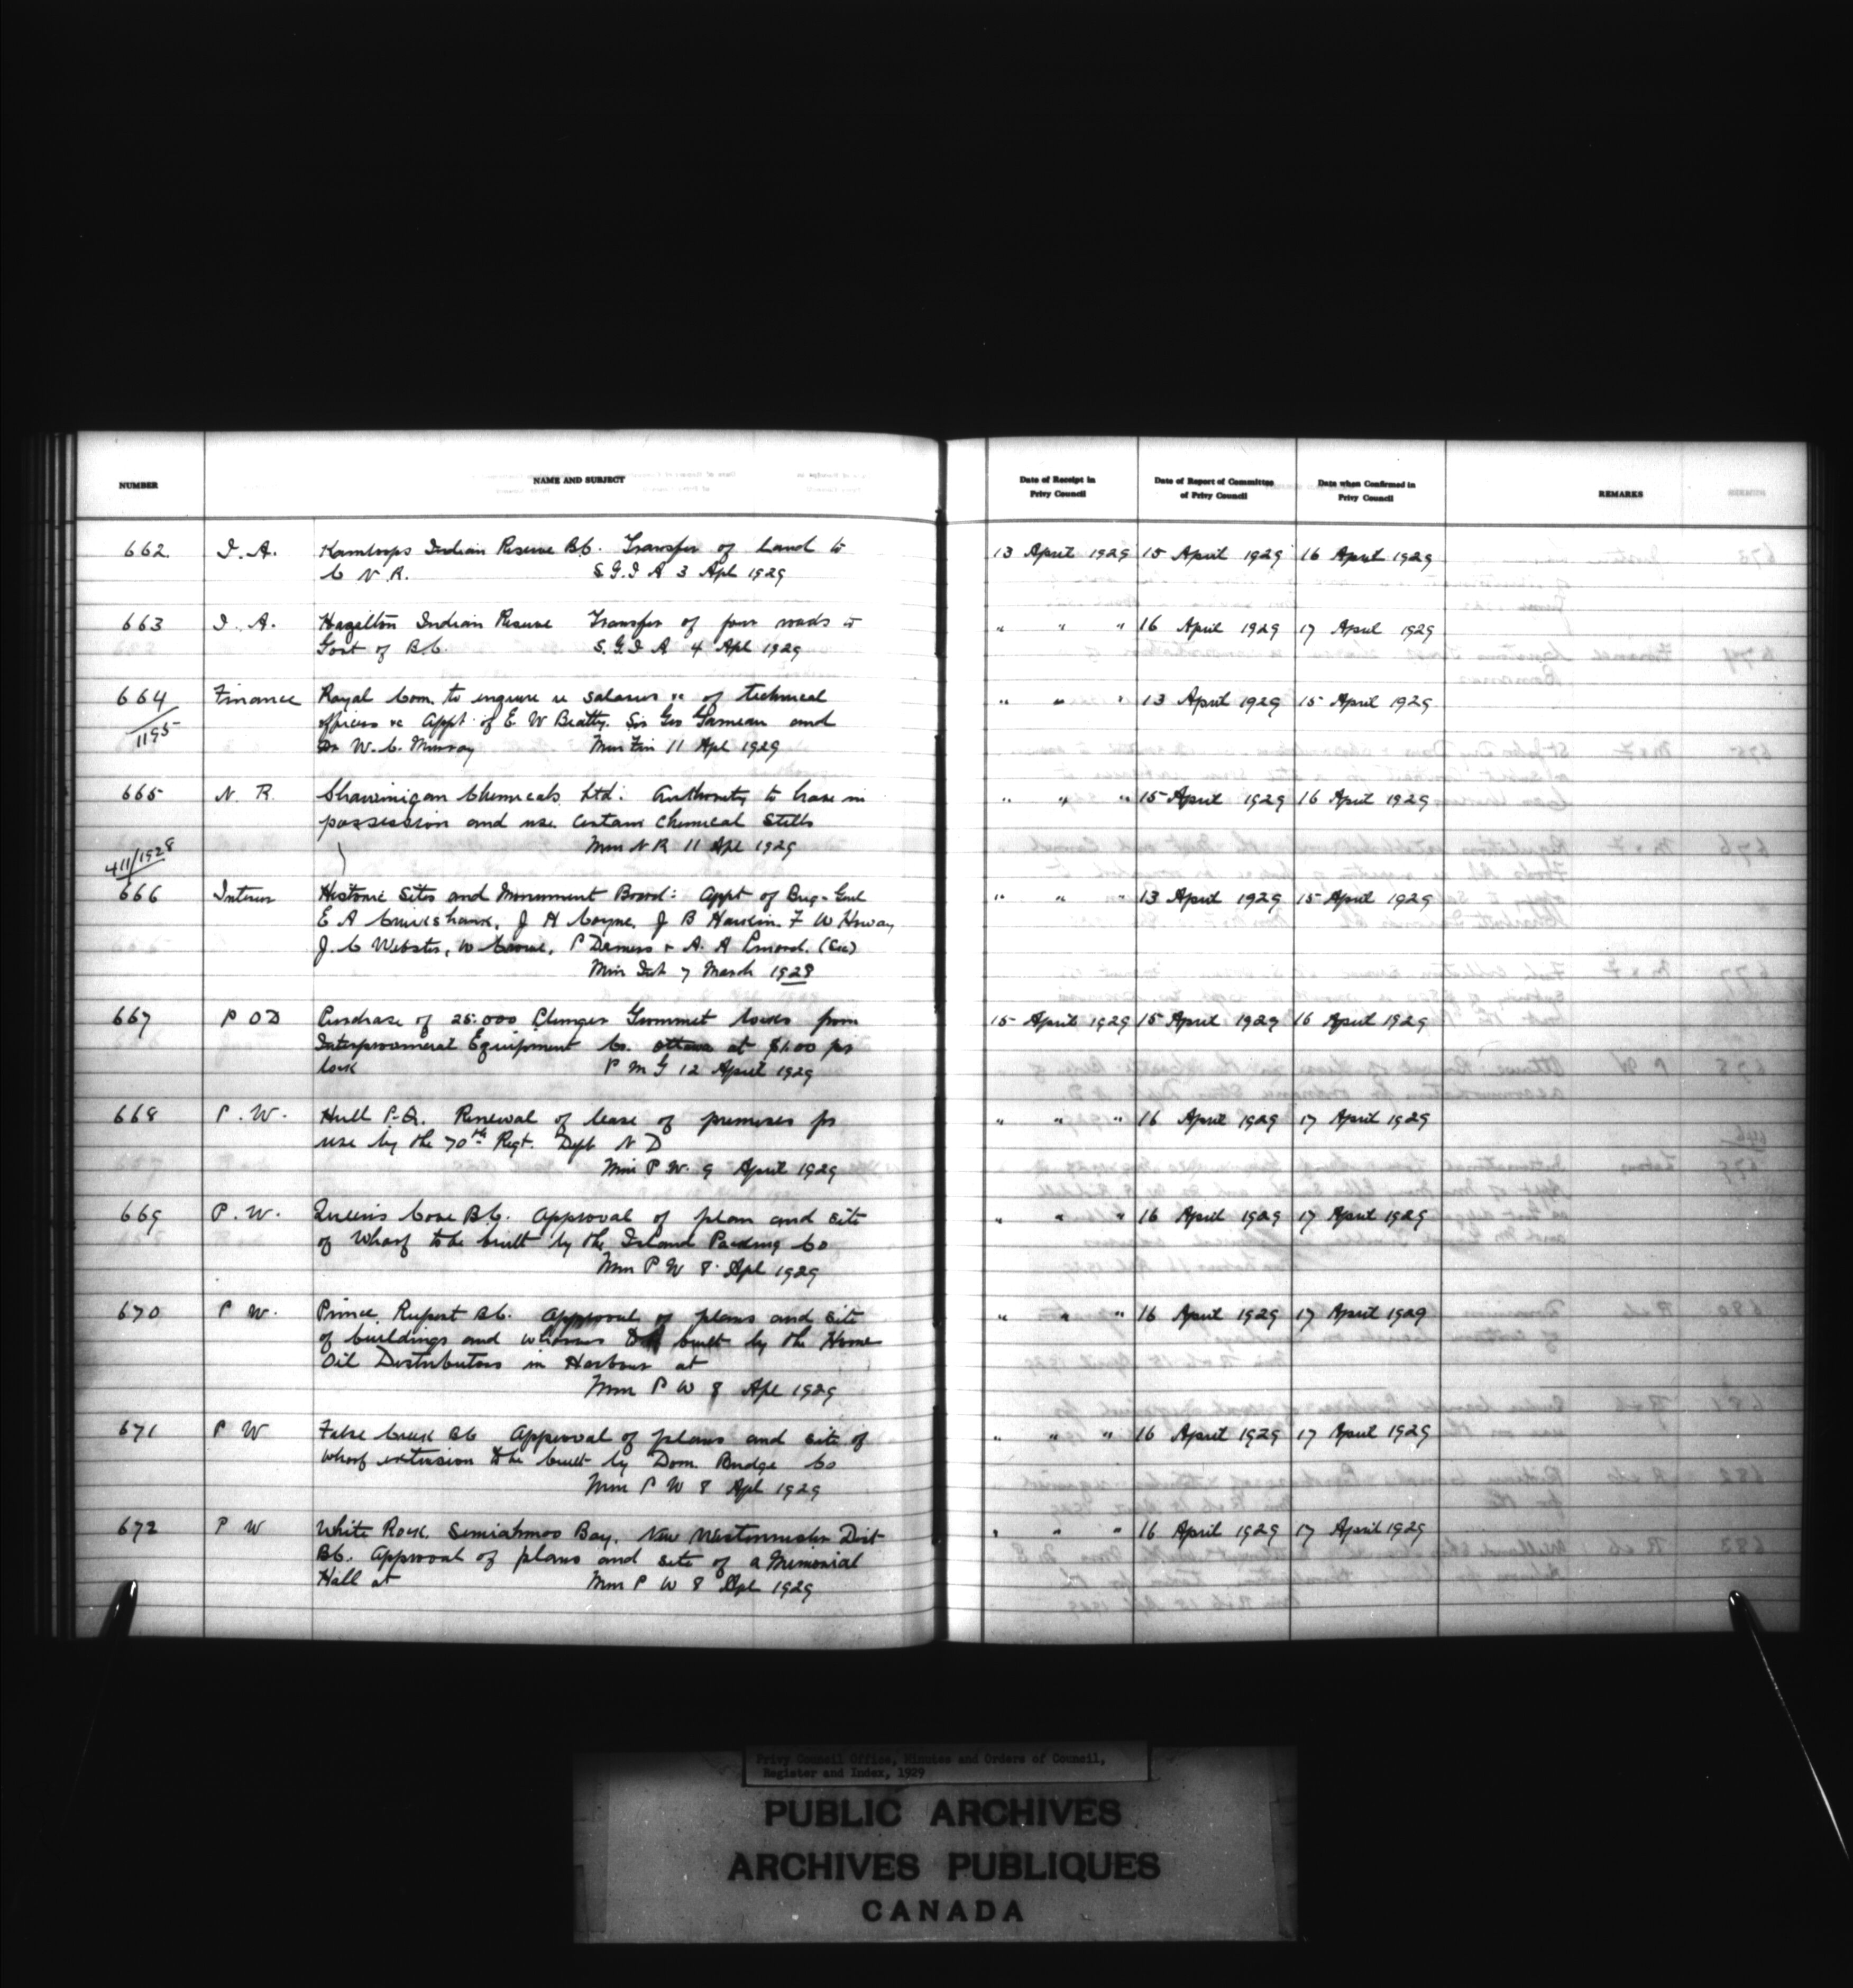 NUMBER NAME AND SUBJECT Date of Receipt in Privy Council Date of Report of Committee of Privy Council Date when Confirmed in Privy Council REMARKS
662 I. A. Kamloops Indian Reserve B.C. Transfer of Land to 13 April 1929 15 April 1929 16 April 1929
C N R. S.G.I A 3 Apl 1929
663 I. A. Hazelton Indian Reserve Transfer of four roads to " " " 16 April 1929 17 April 1929
Govt of B.C. S.G.I A 4 Apl 1929
664 Finance Royal Com. to enquire re salaries &c of technical " " " 13 April 1929 15 April 1929
1195 officers &c Appt of E. W Beatty. Sir Geo Garneau and
Dr W. C. Murray Min Fin 11 Apl 1929
665 N. R. Shawinigan Chemicals Ltd: Authority to have in " " " 15 April 1929 16 April 1929
possession and use certain chemical Stills
Min N R 11 Apl 1929
411/1928
666 Interior Historic Sites and Monument Board: Appt of Brig-Genl " " " 13 April 1929 15 April 1929
E A Cruikshank, J H Coyne, J B Harkin, F W Howay
J. C Webster, W Crowe, P Demers & A. A Pinard. (Sec)
Min Int 7 March 1928
667 P O D Purchase of 25.000 Plunger Grommet locks from 15 April 1929 15 April 1929 16 April 1929
Interprovincial Equipment Co. Ottawa at $1.00 per
lock P M G 12 April 1929
668 P. W. Hull P.Q. Renewal of lease of premises for " " " 16 April 1929 17 April 1929
use by the 70th Regt. Dept N D
Min P W. 9 April 1929
669 P. W. Queen's Cove B.C. Approval of plan and site " " " 16 April 1929 17 April 1929
of Wharf to be built by the Island Packing Co
Min P W 8 Apl 1929
670 P W. Prince Rupert B.C. Approval of plans and site " " " 16 April 1929 17 April 1929
of buildings and wharves to be built by the Home
Oil Distributors in Harbour at
Min P W 8 Apl 1929
671 P W False Creek B C Approval of plans and site of " " " 16 April 1929 17 April 1929
Wharf extension to be built by Dom. Bridge Co
Min P W 8 Apl 1929
672 P W White Rock. Semiahmoo Bay, New Westminster Dist " " " 16 April 1929 17 April 1929
B.C. Approval of plans and site of a Memorial
Hall at Min P W 8 Apl 1929
Privy Council Office, Minutes and Orders of Council,
Register and Index, 1929
PUBLIC ARCHIVES
ARCHIVES PUBLIQUES
CANADA